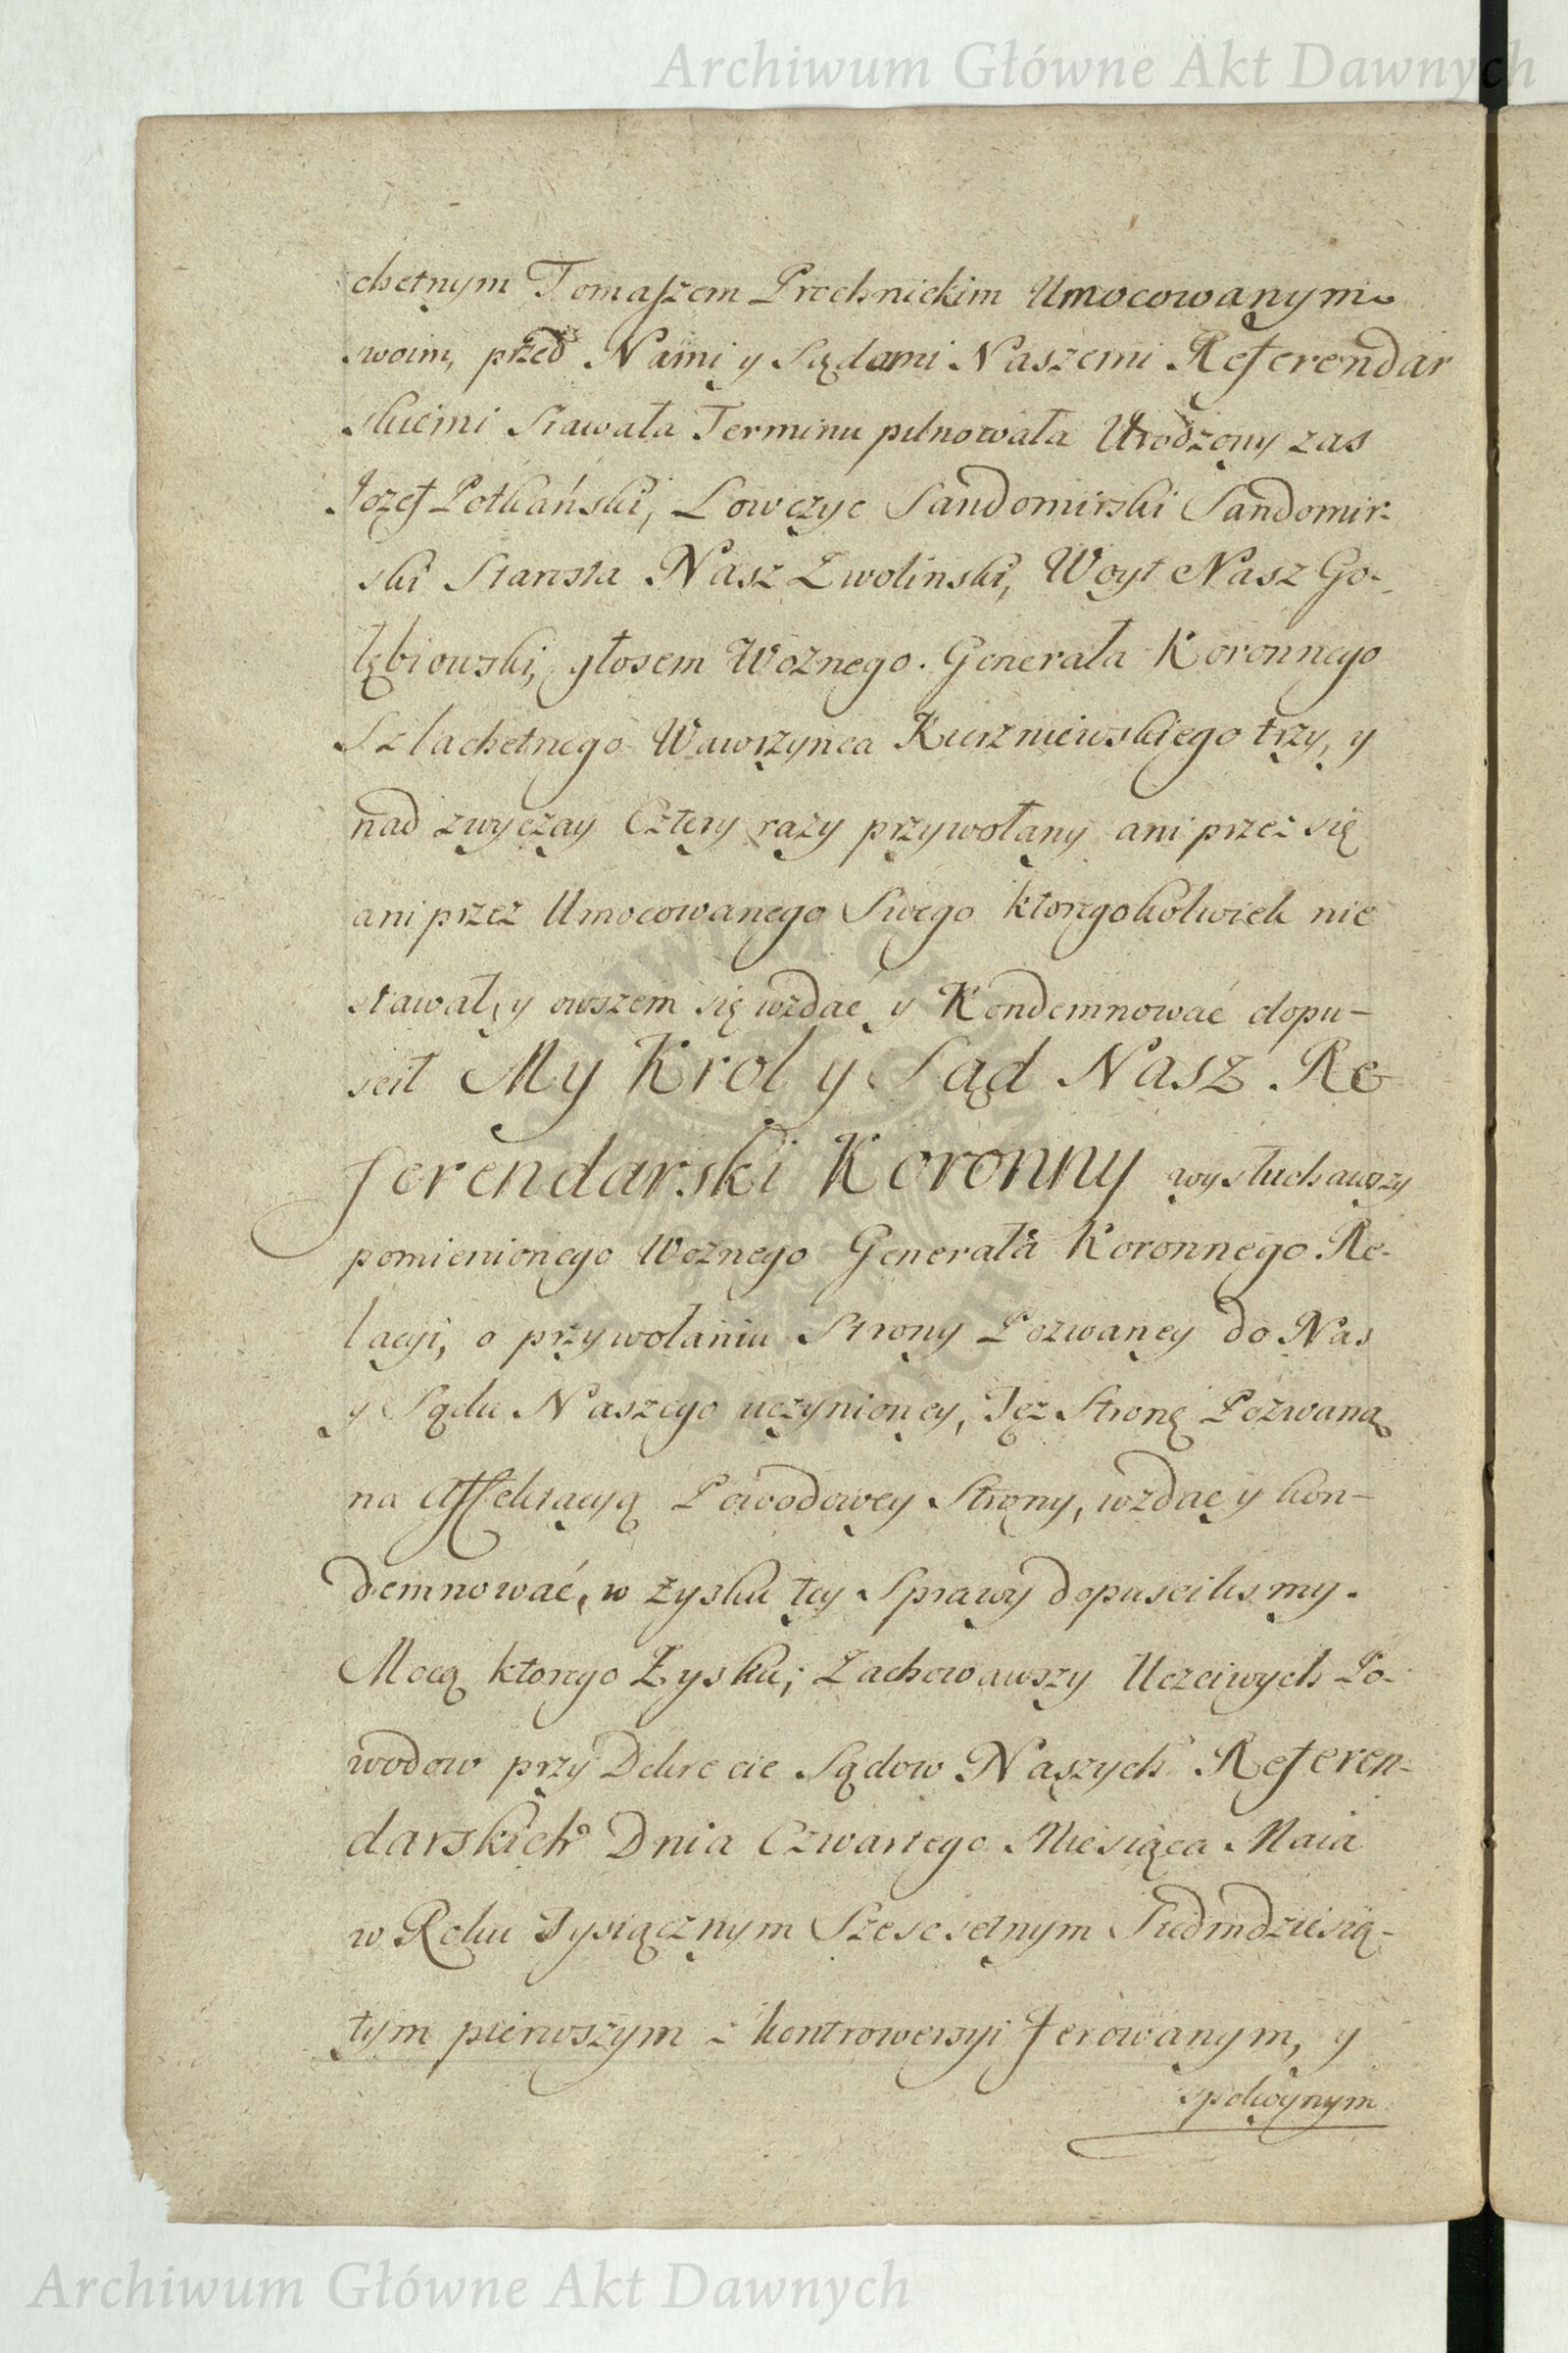 Archiwum Główne Akt Dawnych
chetnym Tomaszem Prochnickim Umocowanym
swoim, przed Nami y Sądami Naszemi Referendar
skiemi stawała Terminu pilnowała Urodzony zas
Jozef Potkański, Łowczyc Sandomirski Sandomir-
ski Starosta Nasz Zwolinski, Woyt Nasz Go-
łębiowski, głosem Woznego Generała Koronnego
Szlachetnego Wawrzynca Kurzniewskiego trzy, y
nad zwyczay Cztery razy przywołany ani przez się
ani przez Umocowanego Swego ktoregokolwiek nie
stawał, y owszem się wzdać y Kondemnować dopu-
scił My Krol y Sąd Nasz Re-
ferendarski Koronny wysłuchawszy
pomienionego Woznego Generała Koronnego Re-
lacyi, o przywołaniu Strony Pozwaney do Nas
y Sądu Naszego uczynioney, Tęż Stronę Pozwaną
na Affektacyą Powodowey Strony, wzdac y kon-
demnować, w zysku tey Sprawy dopuscilismy.
Mocą ktorego Zysku; Zachowawszy Uczciwych Po-
wodow przy Dekrecie Sądow Naszych Referen-
darskich Dnia Czwartego Miesiąca Maia
w Roku Tysiącznym Szescsetnym Siedmdziesią-
tym pierwszym z kontrowersyi ferowanym, y
spokoynym
Archiwum Główne Akt Dawnych